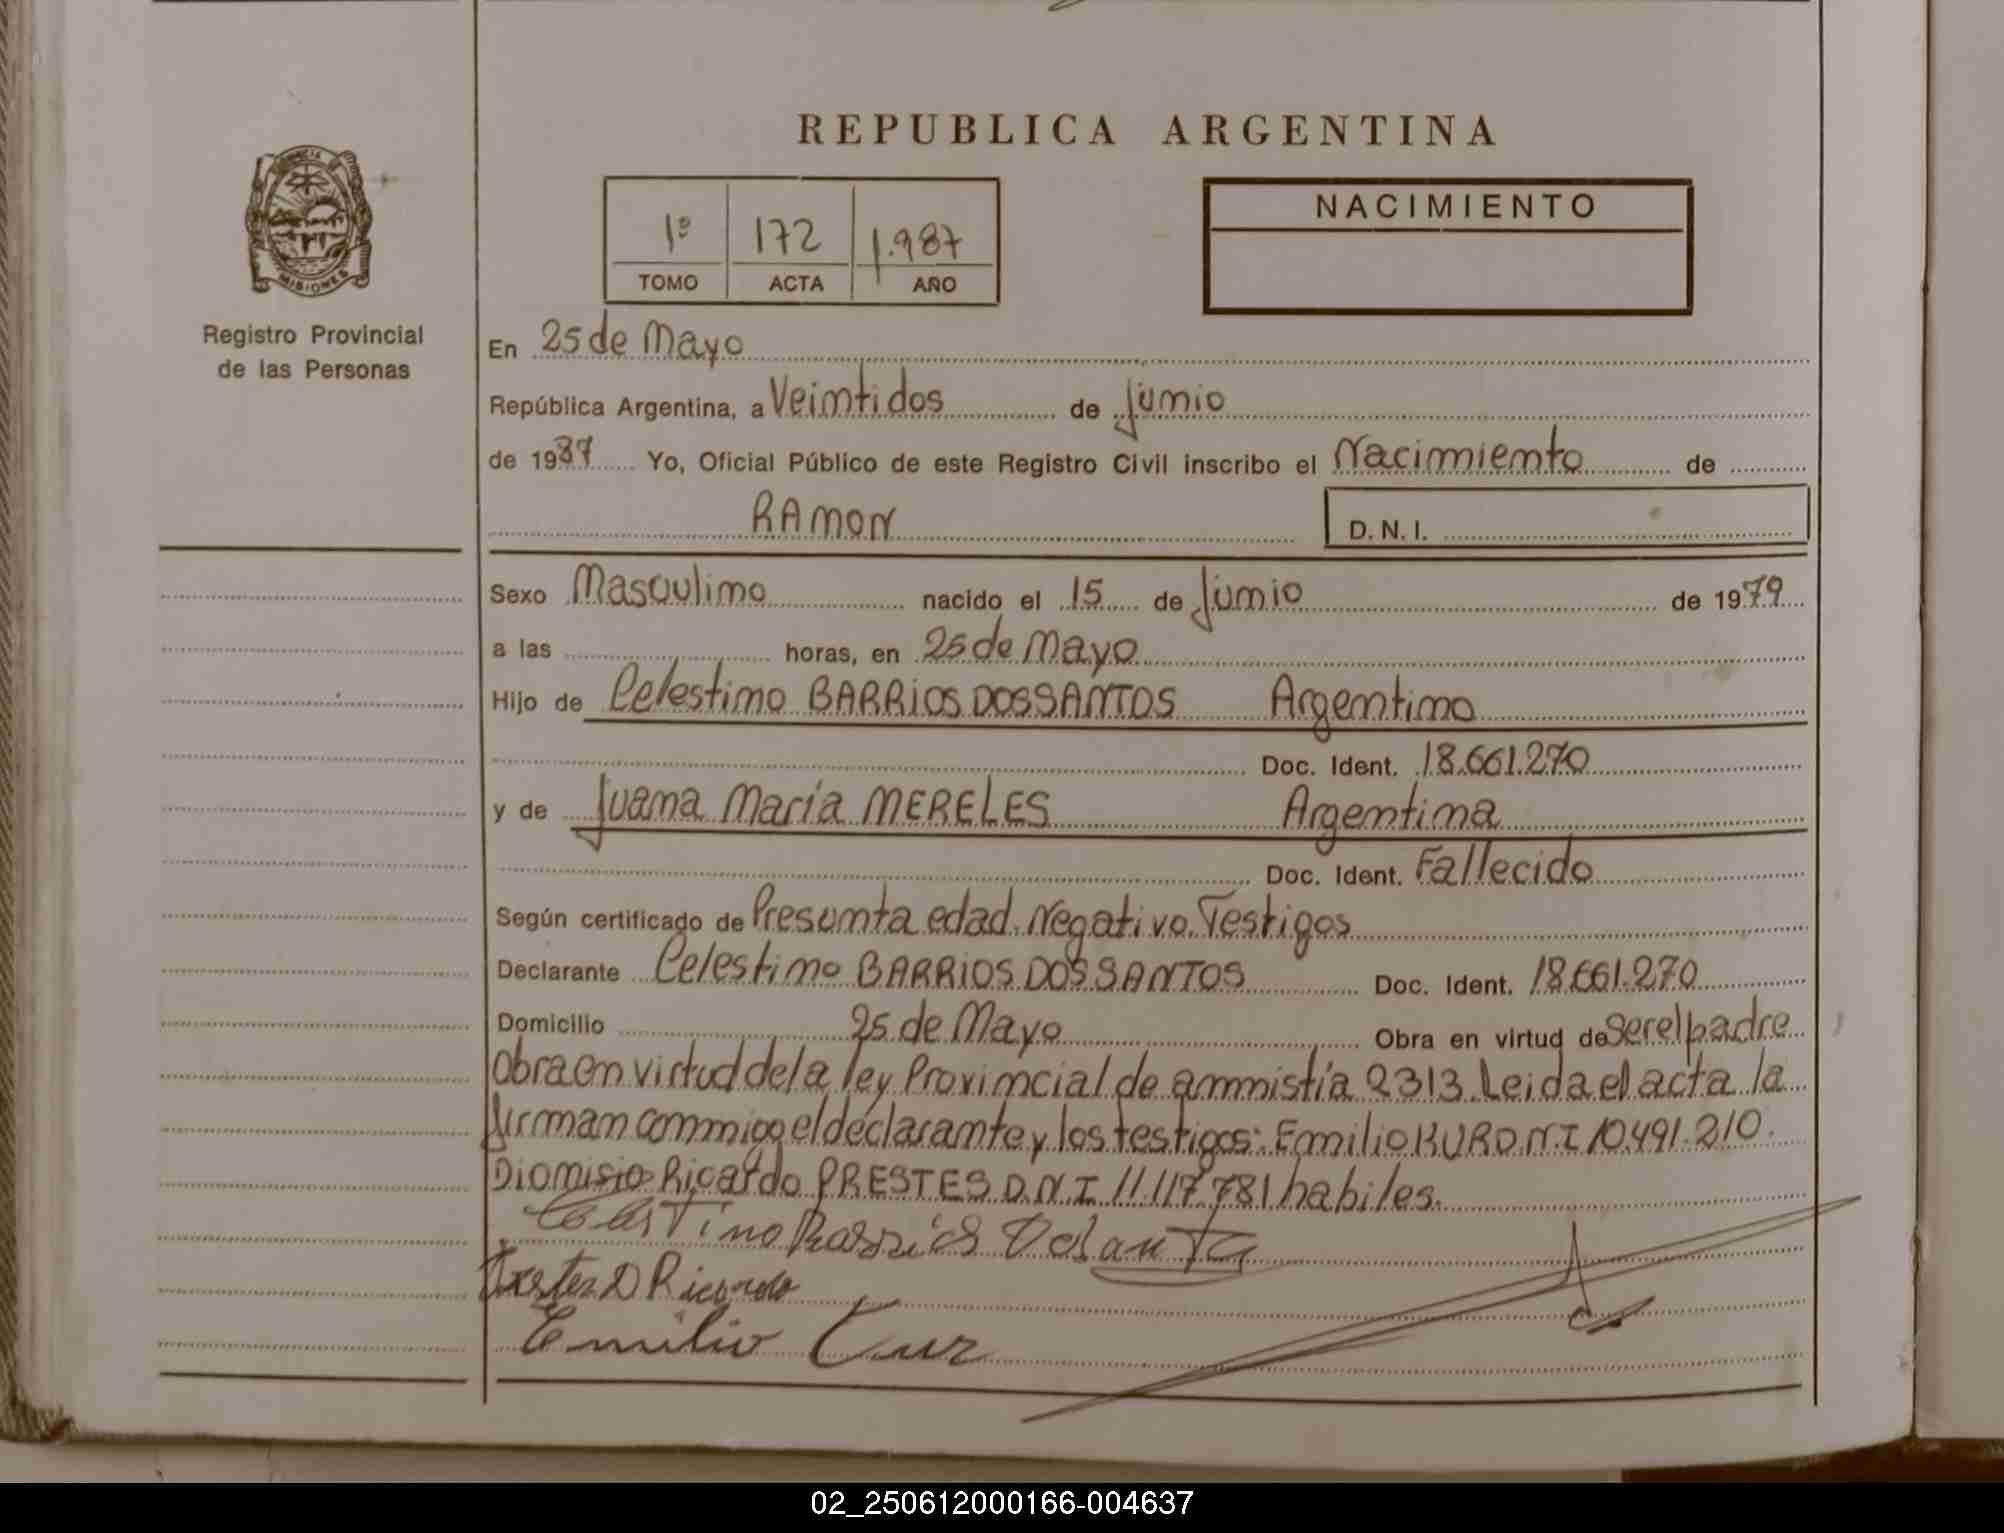 REPUBLICA ARGENTINA
1º 172 1.987
TOMO ACTA AÑO
NACIMIENTO
MISIONES
Registro Provincial
de las Personas
En 25 de Mayo
República Argentina, a Veintidos de junio
de 1987 Yo, Oficial Público de este Registro Civil inscribo el Nacimiento de
RAMON D.N.I.
Sexo Masculino nacido el 15 de junio de 1979
a las horas, en 25 de Mayo
Hijo de Celestino BARRIOS DOSSANTOS Argentino
Doc. Ident. 18.661.270
y de Juana María MERELES Argentina
Doc. Ident. Fallecido
Según certificado de Presunta edad. Negativo. Testigos
Declarante Celestino BARRIOS DOSSANTOS Doc. Ident. 18.661.270
Domicilio 25 de Mayo Obra en virtud de ser el padre
Obra en virtud de la ley Provincial de amnistía 2313. Leida el acta la
firman conmigo el declarante y los testigos: Emilio KUR D.N.I 10.491.210.
Dionisio Ricardo PRESTES D.N.I 11.117.781 habiles.
Celestino Barrios
D Ricardo
Emilio Cur
02_250612000166-004637